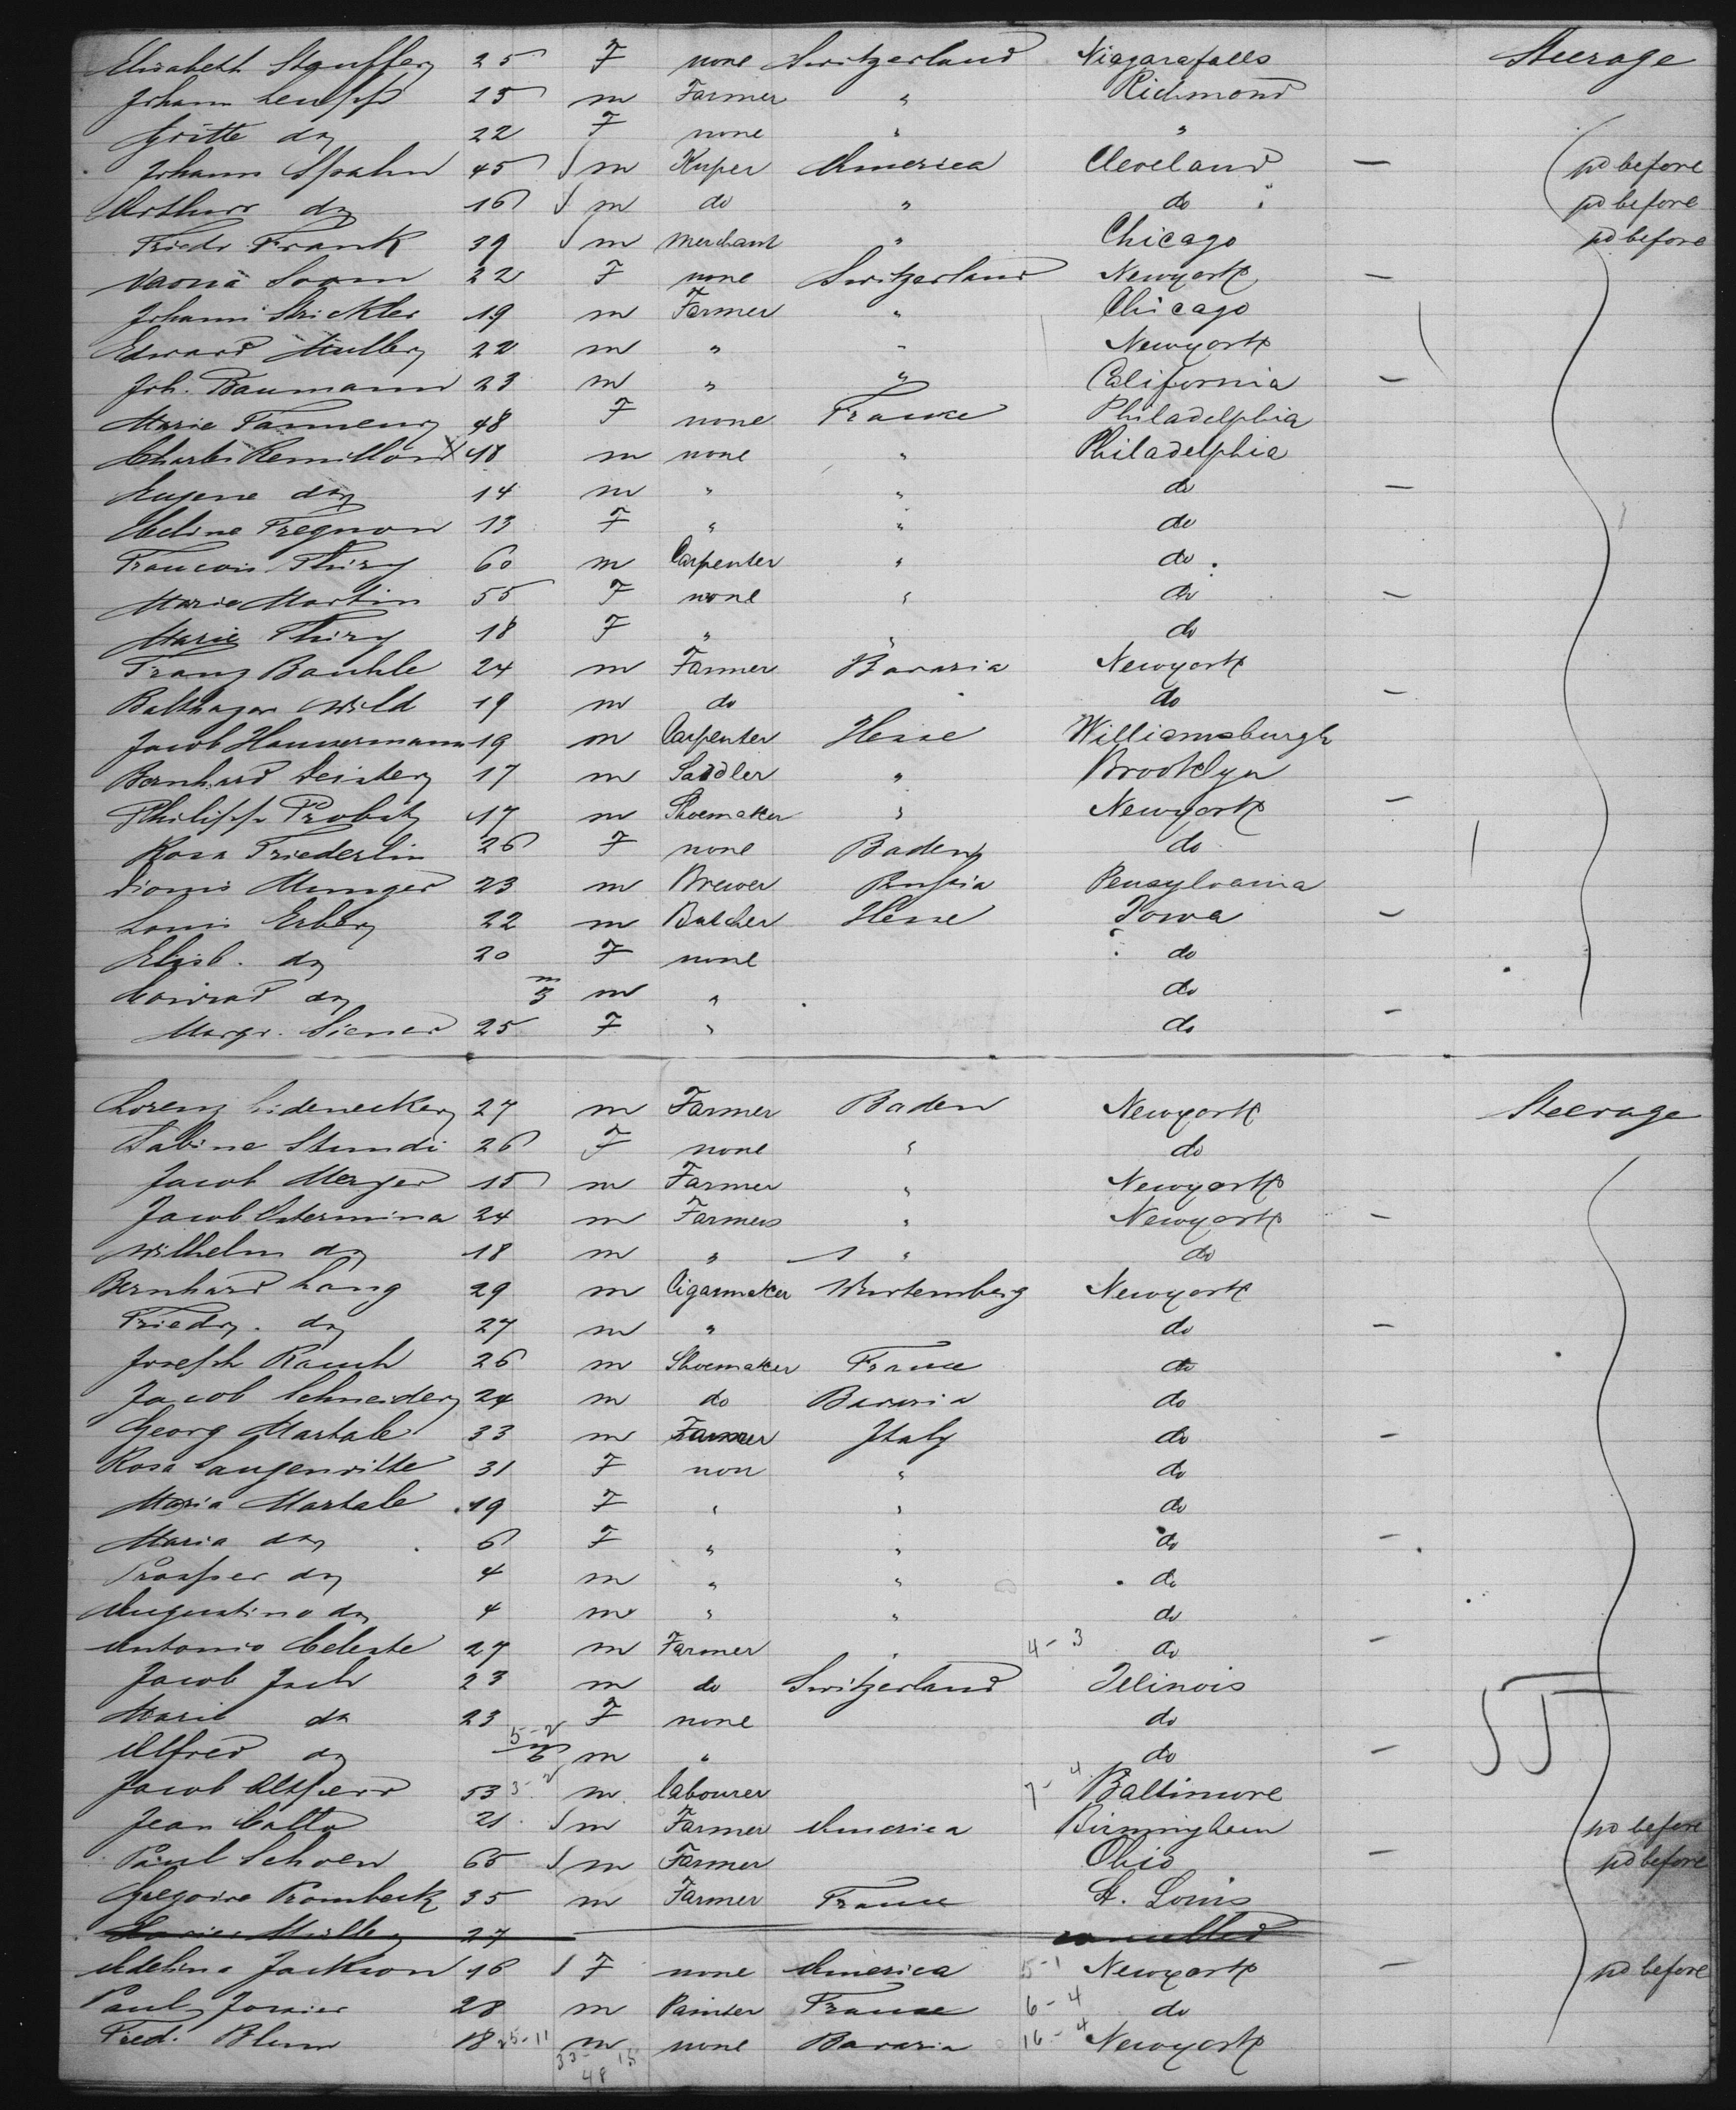 Elisabeth Stauffer 25 F none Switzerland Niagarafalls Steerage
Johann 25 m Farmer " Richmond
Gritte do 22 F none " "
Johann Spahn 45 m Kuper America Cleveland — pd before
Arthur do 16 m do " do " pd before
Friedr Frank 39 m Merchant " Chicago pd before
22 F none Switzerland Newyork —
Johann Strickler 19 m Farmer " Chicago
Edward Muller 22 m " " Newyork
Joh. Baumann 23 m " " California —
Marie 48 F none France Philadelphia
Charles Remillon X 48 m none " Philadelphia
Eugene do 14 m " " do —
Celine Fregnon 13 F " " do
Francois Thiry 60 m Carpenter " do
Marie Martin 55 F none " do —
Marie Thiry 18 F " " do
Franz Bauhle 24 m Farmer Bavaria Newyork
Balthazar Wild 19 m do " do —
Jacob Haussermann 19 m Carpenter Hesse Williamsburgh
Bernhard Deister 17 m Saddler " Brooklyn
Philipp Probst 17 m Shoemaker " Newyork —
Rosa Friederlin 26 F none Baden do
Dionis Munger 23 m Brewer Prussia Pensylvania
Louis Erber 22 m Butcher Hesse Iowa —
Elisb. do 20 F none do
Conrad do m 3 m " do
Margr. Siener 25 F " do —
Lorenz Lidenecker 27 m Farmer Baden Newyork Steerage
Sabine Stundi 26 F none " do
Jacob Merger 15 m Farmer " Newyork
Jacob Ostermina 24 m Farmers " Newyork —
Wilhelm do 18 m " " do
Bernhard Lang 29 m Cigarmaker Wurtemberg Newyork
Friedr. do 27 m " do —
Joseph Rauch 26 m Shoemaker France do
Jacob Schneider 24 m do Bavaria do
Georg Martale 33 m Farmer Italy do —
Rosa 31 F non " do
Maria Martale 19 F " " do
Maria do 6 F " " do —
Prosper do 4 m " " do
Augustino do 4 m " " do
Antonio Celeste 27 m Farmer " 4-3 do —
Jacob 23 m do Switzerland Illinois
Marie do 23 F none do
Alfred do 5-2 m 6 m " do —
Jacob Altherr 53 3-2 m labourer 7-4 Baltimore
Jean 21 m Farmer America Birmingham pd before
Paul Schoen 65 m Farmer Ohio — pd before
Gregoire Krombeck 35 m Farmer France St. Louis
27 cancelled
Adelina Jackson 16 F none America 5-1 Newyork — pd before
Paul 28 m Painter France 6-4 do
Fred. Blum 18 25-11 m none Bavaria 16-4 Newyork
33- 15
48